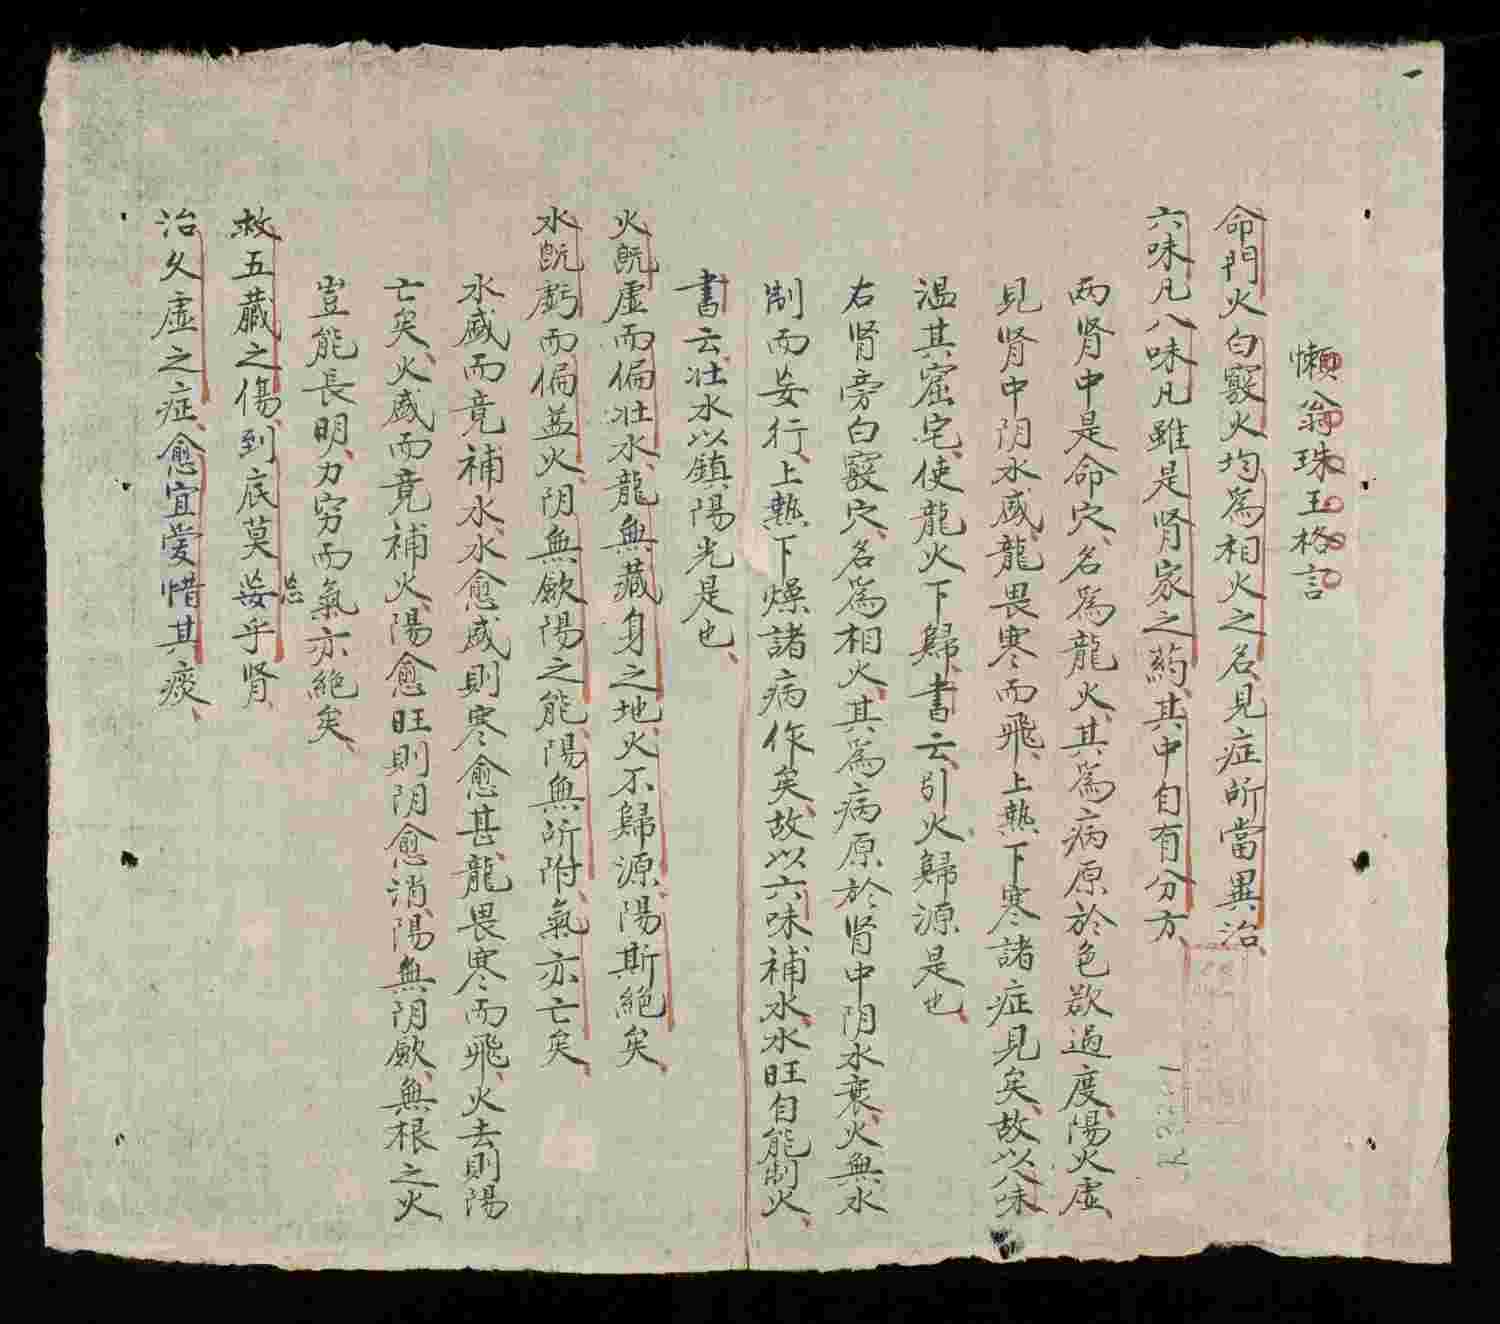 懶翁珠玉格言
命門火白竅火均爲相火之名、見症所當異治、
六味凡八味凡雖是肾家之葯、其中自有分方、
两肾中是命穴、名爲龍火、其爲病原於色欲過度、陽火虛、
見肾中阴水盛、龍畏寒而飛、上熱下寒諸症見矣、故以八味
温其窟宅、使龍火下歸、書云、引火歸源是也、
右肾旁白竅穴、名爲相火、其爲病原於肾中阴水衰、火無水
制而妄行、上熱下燥諸病作矣、故以六味補水、水旺自能制火、
書云、壮水以鎮陽光是也、
火旣虛而偏壮水、龍無藏身之地、火不歸源、陽斯絕矣、
水旣虧而偏益火、阴無歛陽之能、陽無所附、氣亦亡矣、
水盛而竟補水、水愈盛則寒愈甚、龍畏寒而飛、火去則陽
亡矣、火盛而竟補火、陽愈旺則阴愈消、陽無阴歛、無根之火
豈能長明、力穷而氣亦絕矣、
救五藏之傷、到底莫妄乎肾、
忘
治久虛之症、愈宜愛惜其痰、
R.2211